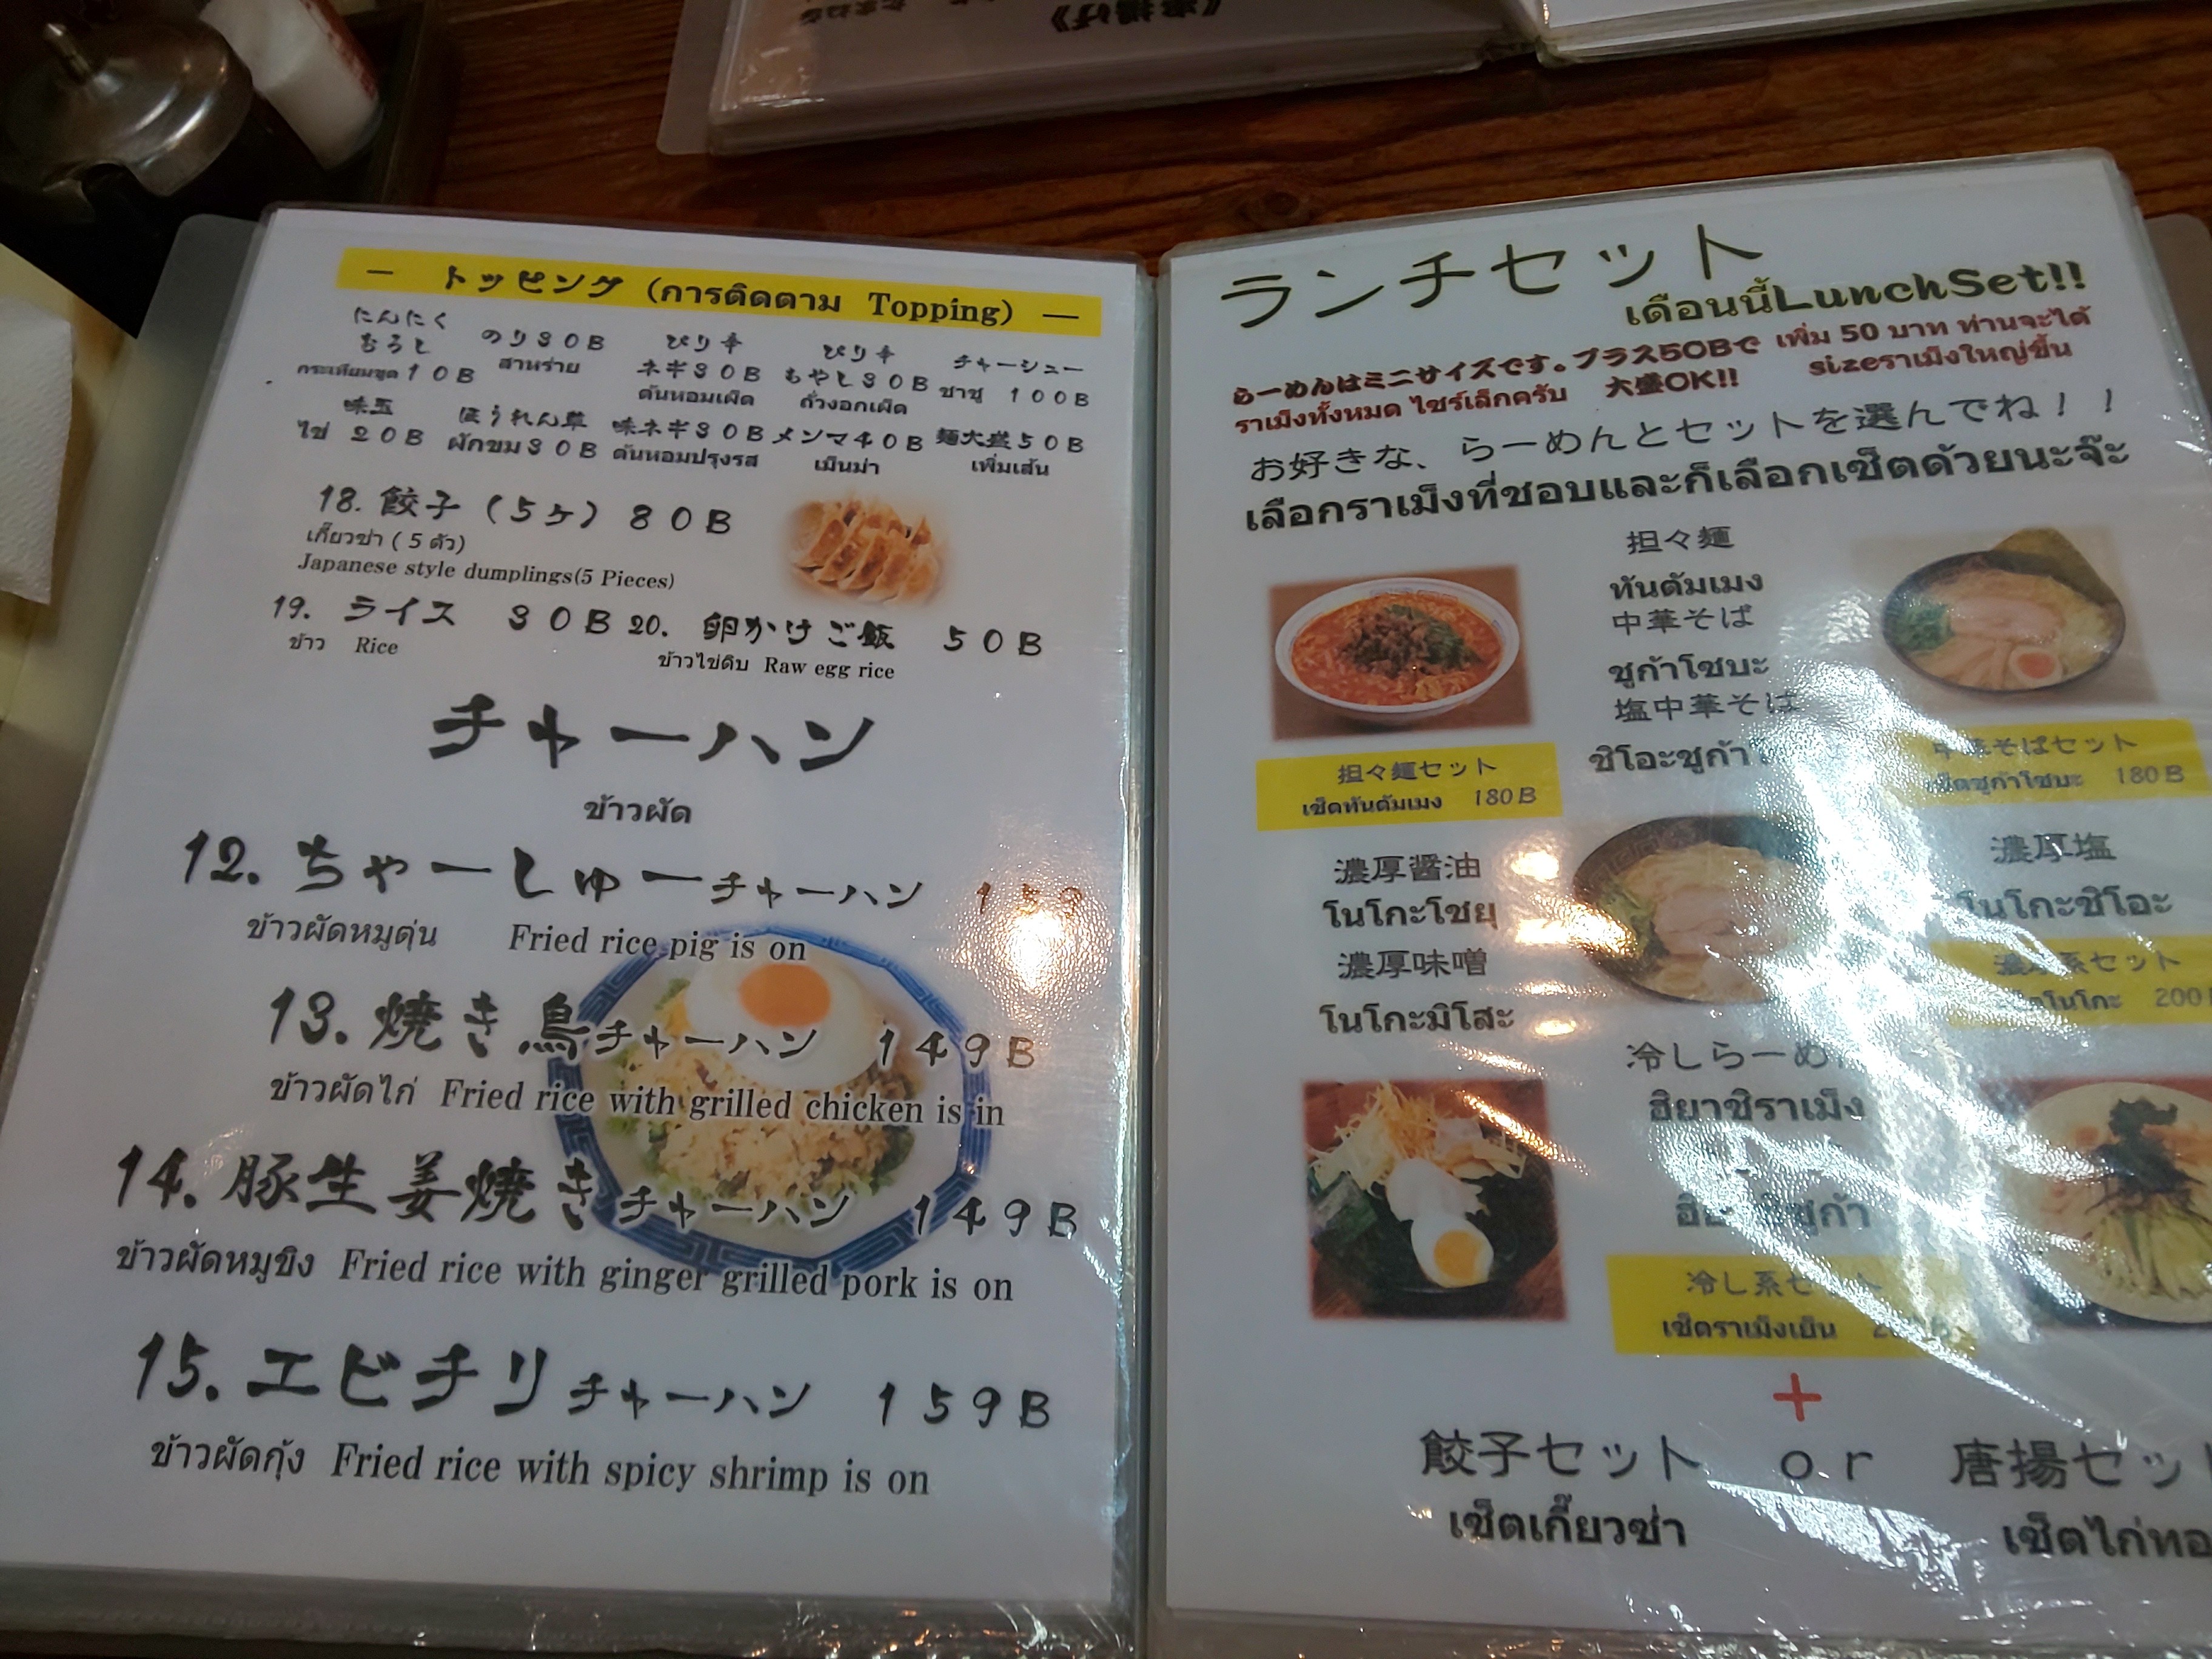 《唐揚げ》
— トッピング (การติดตาม Topping) —
にんにく
むろと
กระเทียมขูด 10B
のり30B
สาหร่าย
ぴり辛
ネギ30B
ต้นหอมเผ็ด
ぴり辛
もやし30B
ถั่วงอกเผ็ด
チャーシュー
ชาชู 100B
味玉
ไข่ 20B
ほうれん草
ผักขม30B
味ネギ30B
ต้นหอมปรุงรส
メンマ40B
เม็นม่า
麺大盛50B
เพิ่มเส้น
18. 餃子 (5ヶ) 80B
เกี๊ยวซ่า ( 5 ตัว)
Japanese style dumplings(5 Pieces)
19. ライス 30B
ข้าว Rice
20. 卵かけご飯 50B
ข้าวไข่ดิบ Raw egg rice
チャーハン
ข้าวผัด
12. ちゃーしゅーチャーハン 159
ข้าวผัดหมูตุ่น Fried rice pig is on
13. 焼き鳥チャーハン 149B
ข้าวผัดไก่ Fried rice with grilled chicken is in
14. 豚生姜焼きチャーハン 149B
ข้าวผัดหมูขิง Fried rice with ginger grilled pork is on
15. エビチリチャーハン 159B
ข้าวผัดกุ้ง Fried rice with spicy shrimp is on
ランチセット
เดือนนี้LunchSet!!
らーめんはミニサイズです。プラス50Bで เพิ่ม 50 บาท ท่านจะได้
ราเม็งทั้งหมด ไซร์เล็กครับ 大盛OK!! sizeราเม็งใหญ่ขึ้น
お好きな、らーめんとセットを選んでね！！
เลือกราเม็งที่ชอบและก็เลือกเซ็ตด้วยนะจ๊ะ
担々麺
ทันตัมเมง
中華そば
ชูก้าโซบะ
塩中華そば
ชิโอะชูก้า
担々麺セット
เซ็ตทันตัมเมง 180B
中華そばセット
เซ็ตชูก้าโซบะ 180B
濃厚醤油
โนโกะโชยุ
濃厚味噌
โนโกะมิโสะ
濃厚塩
โนโกะชิโอะ
濃厚系セット
โนโกะ 200
冷しらーめ
ฮิยาชิราเม็ง
冷し系セット
เซ็ตราเม็งเย็น
+
餃子セット or 唐揚セッ
เซ็ตเกี๊ยวซ่า เซ็ตไก่ทอ